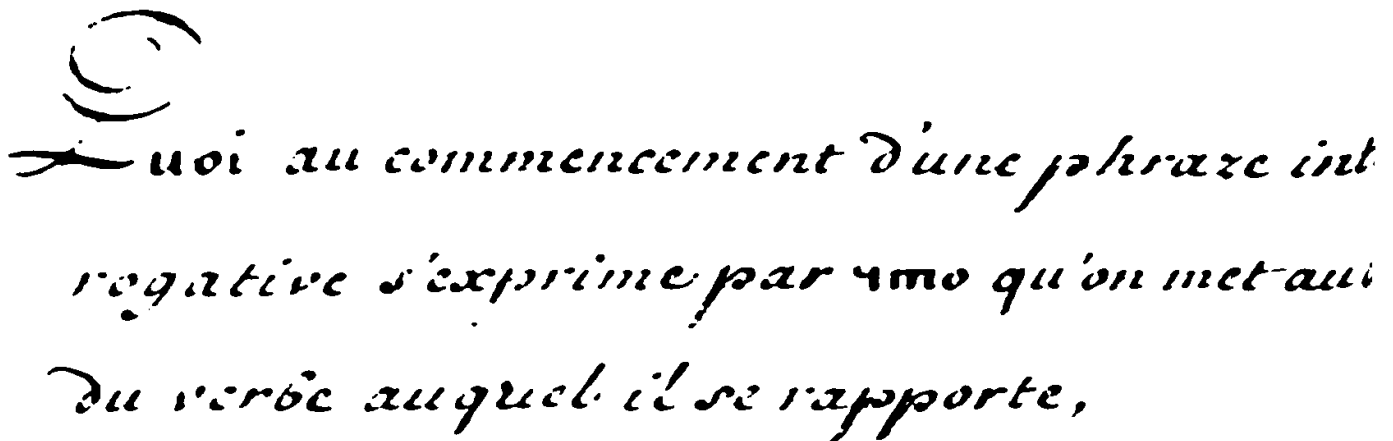 Quoi au commencement d'une phraze int
rogative s'exprime par qu'on met au
du verbe auquel il se rapporte,